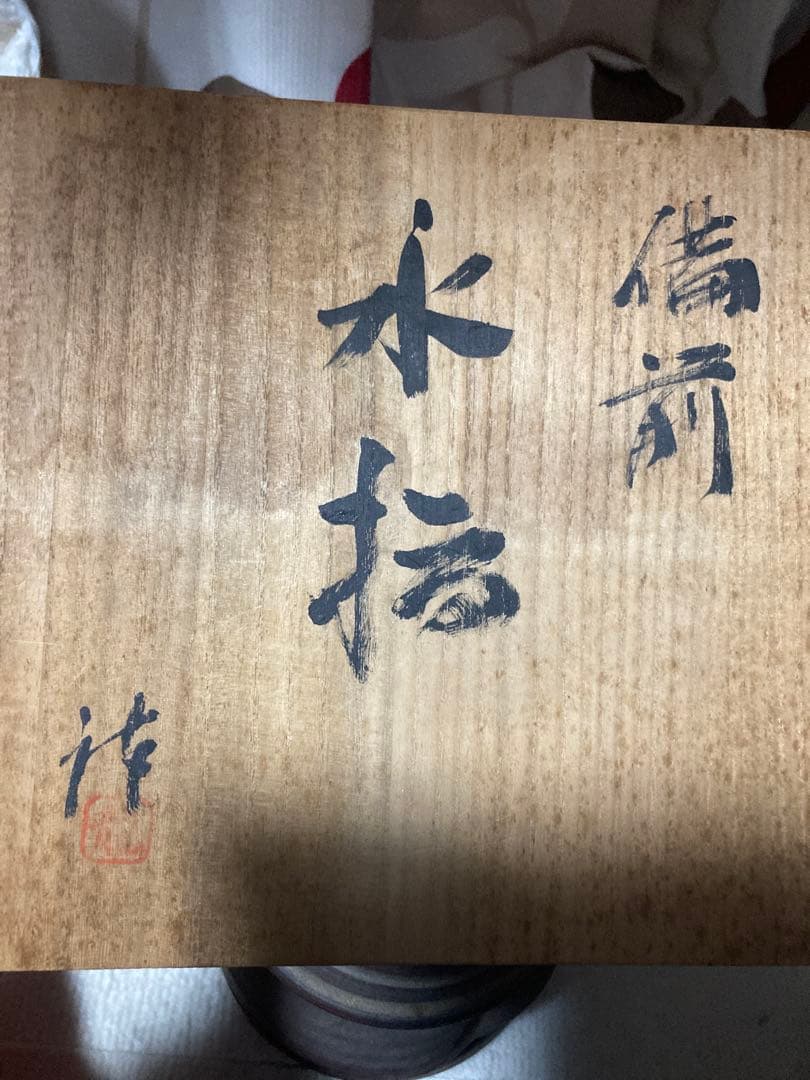 備前
水指